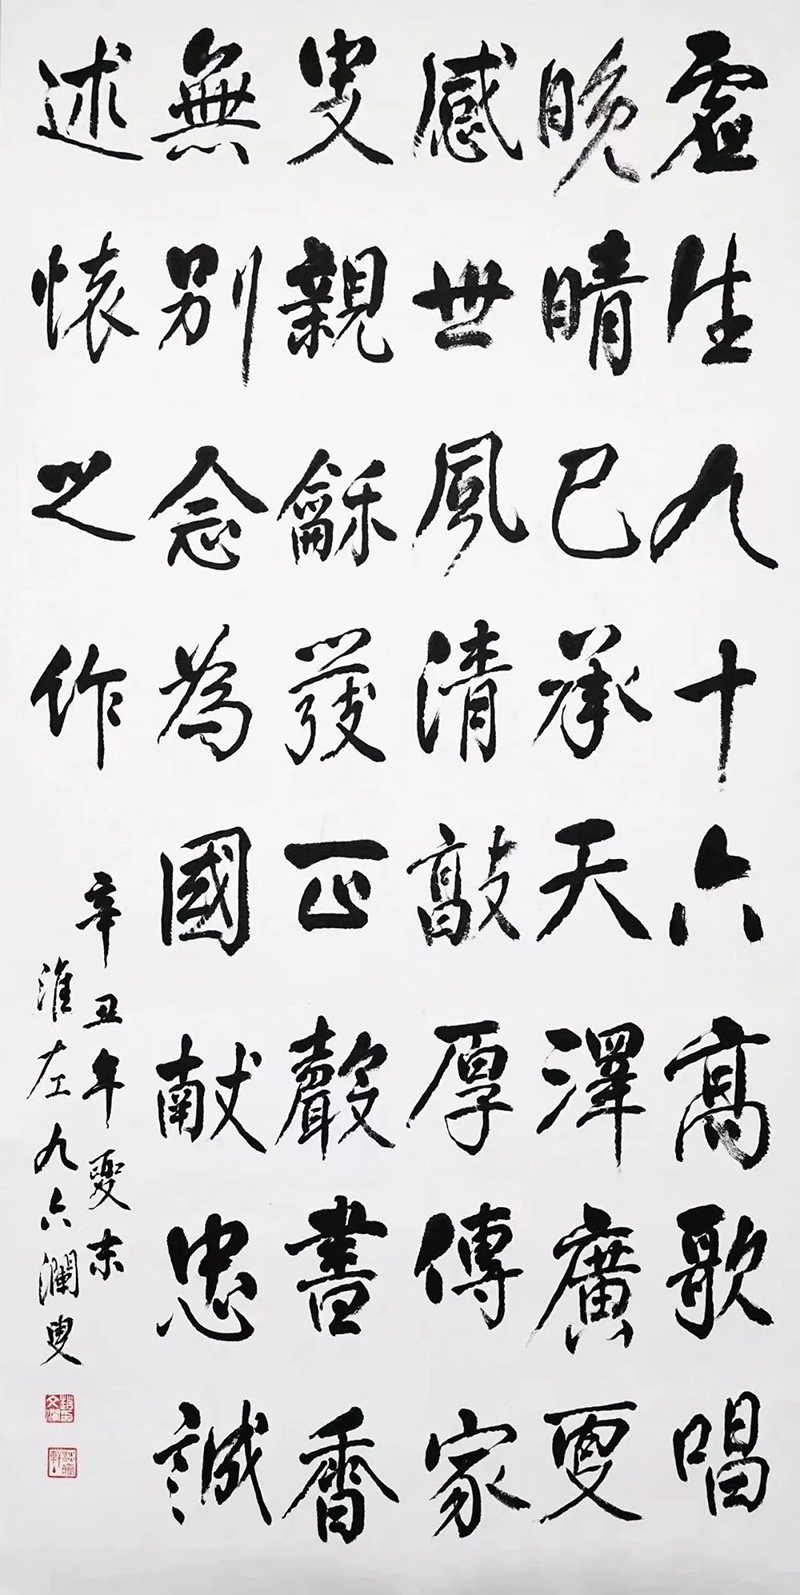 虛生九十六高歌唱
晚晴已承天澤廣更
感世風清敦厚傳家
叟親龢發正聲書香
無別念為國献忠誠
述懷之作
辛丑年夏末
淮左九六瀾叟